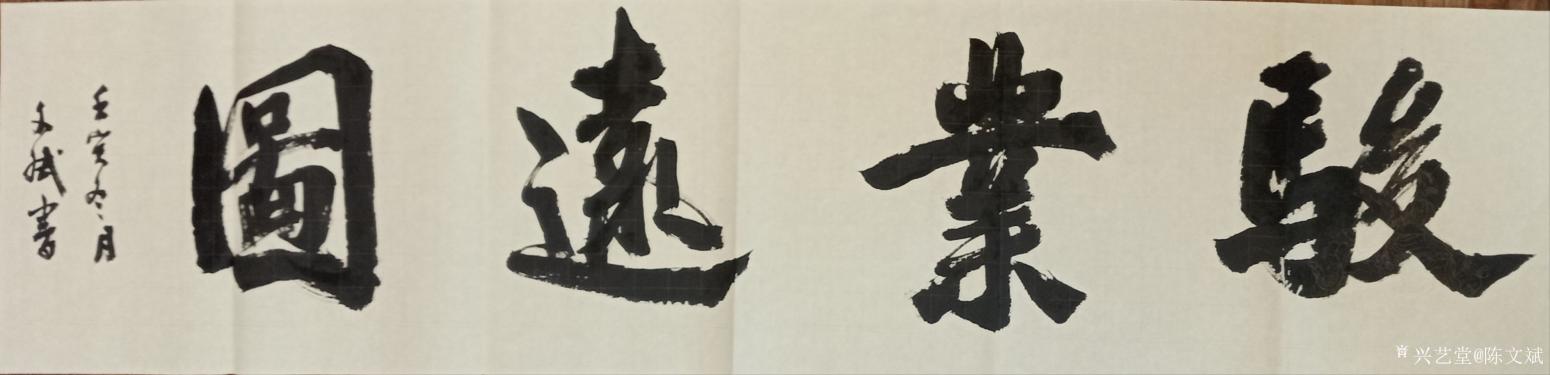 駿業遠圖
壬寅冬月
文斌書
兴艺堂@陈文斌